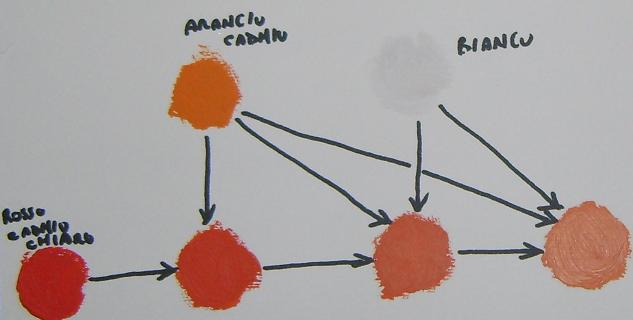 ARANCIO
CADMIO
BIANCO
ROSSO
CADMIO
CHIARO